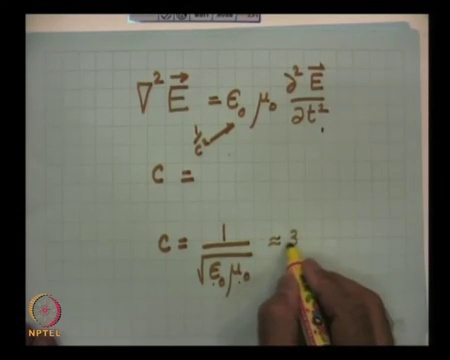 ∇² E⃗ = ε₀ μ₀ ∂²E⃗/∂t²
C =
C = 1/√(ε₀ μ₀) ≈ 3
NPTEL